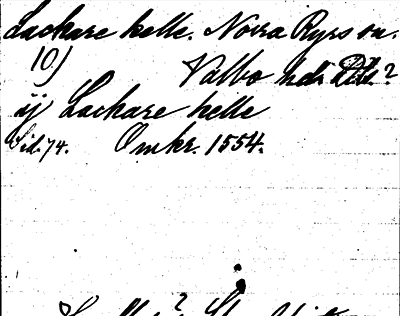 Lackare kelle. Norra Ryrs sn.
10) Valbo hd. Dls.?
ij Lackare kelle
Sid. 74. Omkr. 1554.